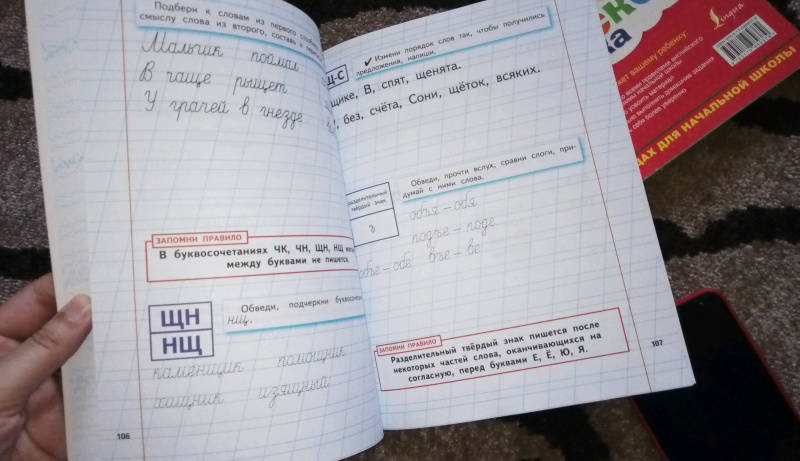 Подбери к словам из первого
смыслу слова из второго, составь и
Мальчик поймал
В чаще рыщет
У грачей в гнезде
ЗАПОМНИ ПРАВИЛО
В БУКВОСОЧЕТАНИЯХ ЧК, ЧН, ЩН, НЩ
МЕЖДУ БУКВАМИ НЕ ПИШЕТСЯ.
ЩН
НЩ
Обведи, подчеркни
нщ.
каменщик помощник
хищник изящный
106
✔ Измени порядок слов так, чтобы получились
предложения, напиши.
Щ-С
В, спят, щенята.
без, счёта, Сони, щёток, всяких.
Обведи, прочти вслух, сравни слоги, при-
думай с ними слова.
разделительный
твёрдый знак
ъ
объя – обя
подъе – поде
объе – обе въе – ве
ЗАПОМНИ ПРАВИЛО
Разделительный твёрдый знак пишется после
некоторых частей слова, оканчивающихся на
согласную, перед буквами Е, Ё, Ю, Я.
107
Lingua
вашему ребенку
ДЛЯ НАЧАЛЬНОЙ ШКОЛЫ